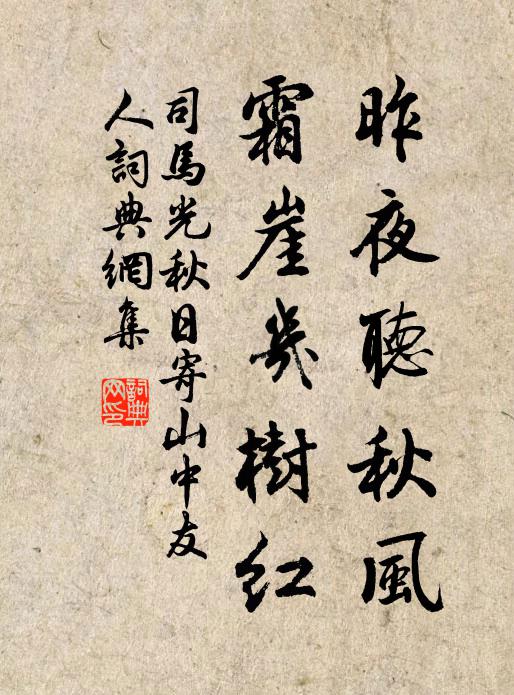 昨夜聽秋風
霜崖幾樹紅
司馬光秋日寄山中友
人詞典網集
詞典網印